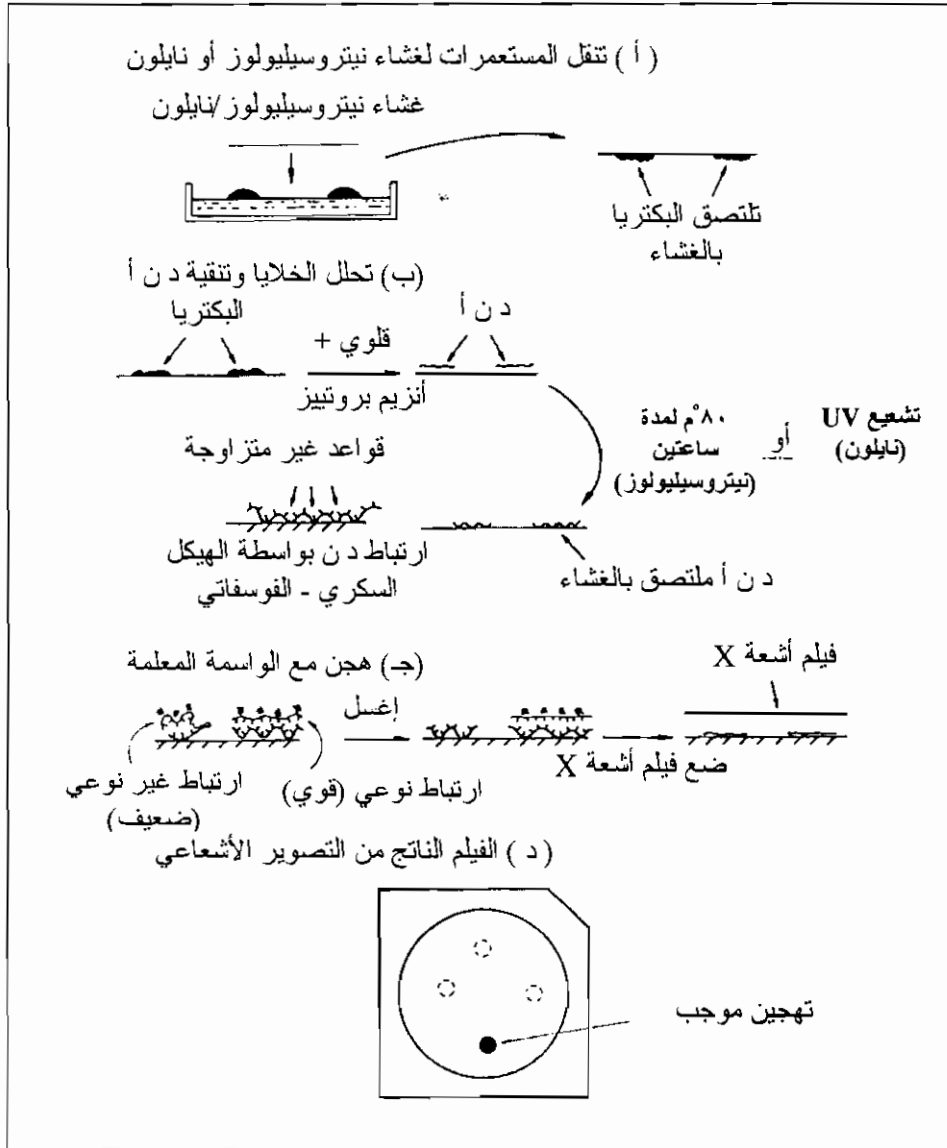 ( أ ) تنقل المستعمرات لغشاء نيتروسيليولوز أو نايلون
غشاء نيتروسيليولوز/نايلون
تلتصق البكتريا
بالغشاء
(ب) تحلل الخلايا وتنقية د ن أ
البكتريا
د ن أ
قلوي +
أنزيم بروتييز
٨٠°م لمدة
ساعتين
(نيتروسيليولوز)
أو
تشعيع UV
(نايلون)
قواعد غير متزاوجة
ارتباط د ن بواسطة الهيكل
السكري - الفوسفاتي
د ن أ ملتصق بالغشاء
(جـ) هجن مع الواسمة المعلمة
فيلم أشعة X
إغسل
ضع فيلم أشعة X
ارتباط نوعي (قوي)
ارتباط غير نوعي
(ضعيف)
( د ) الفيلم الناتج من التصوير الأشعاعي
تهجين موجب